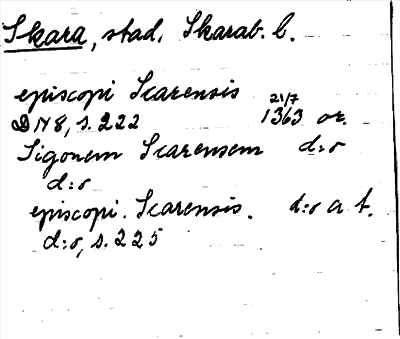 Skara, stad, Skarab. l.
episcopi Scarensis 21/7
DN 8, s. 222 1363 or.
Sigonem Scarensem d:o
d:o
episcopi. Scarensis. d:o a t.
d:o, s. 225